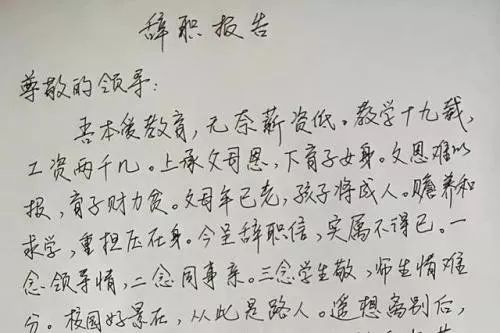 辞职报告
尊敬的领导:
吾本爱教育,无奈薪资低。教学十九载,
工资两千几。上承父母恩,下育子女身。父恩难以
报,育子财力贫。父母年已老,孩子将成人。赡养和
求学,重担压在身。今呈辞职信,实属不得已。一
念领导情,二念同事亲。三念学生敬,师生情难
分。校园好景在,从此是路人。遥想离别后,